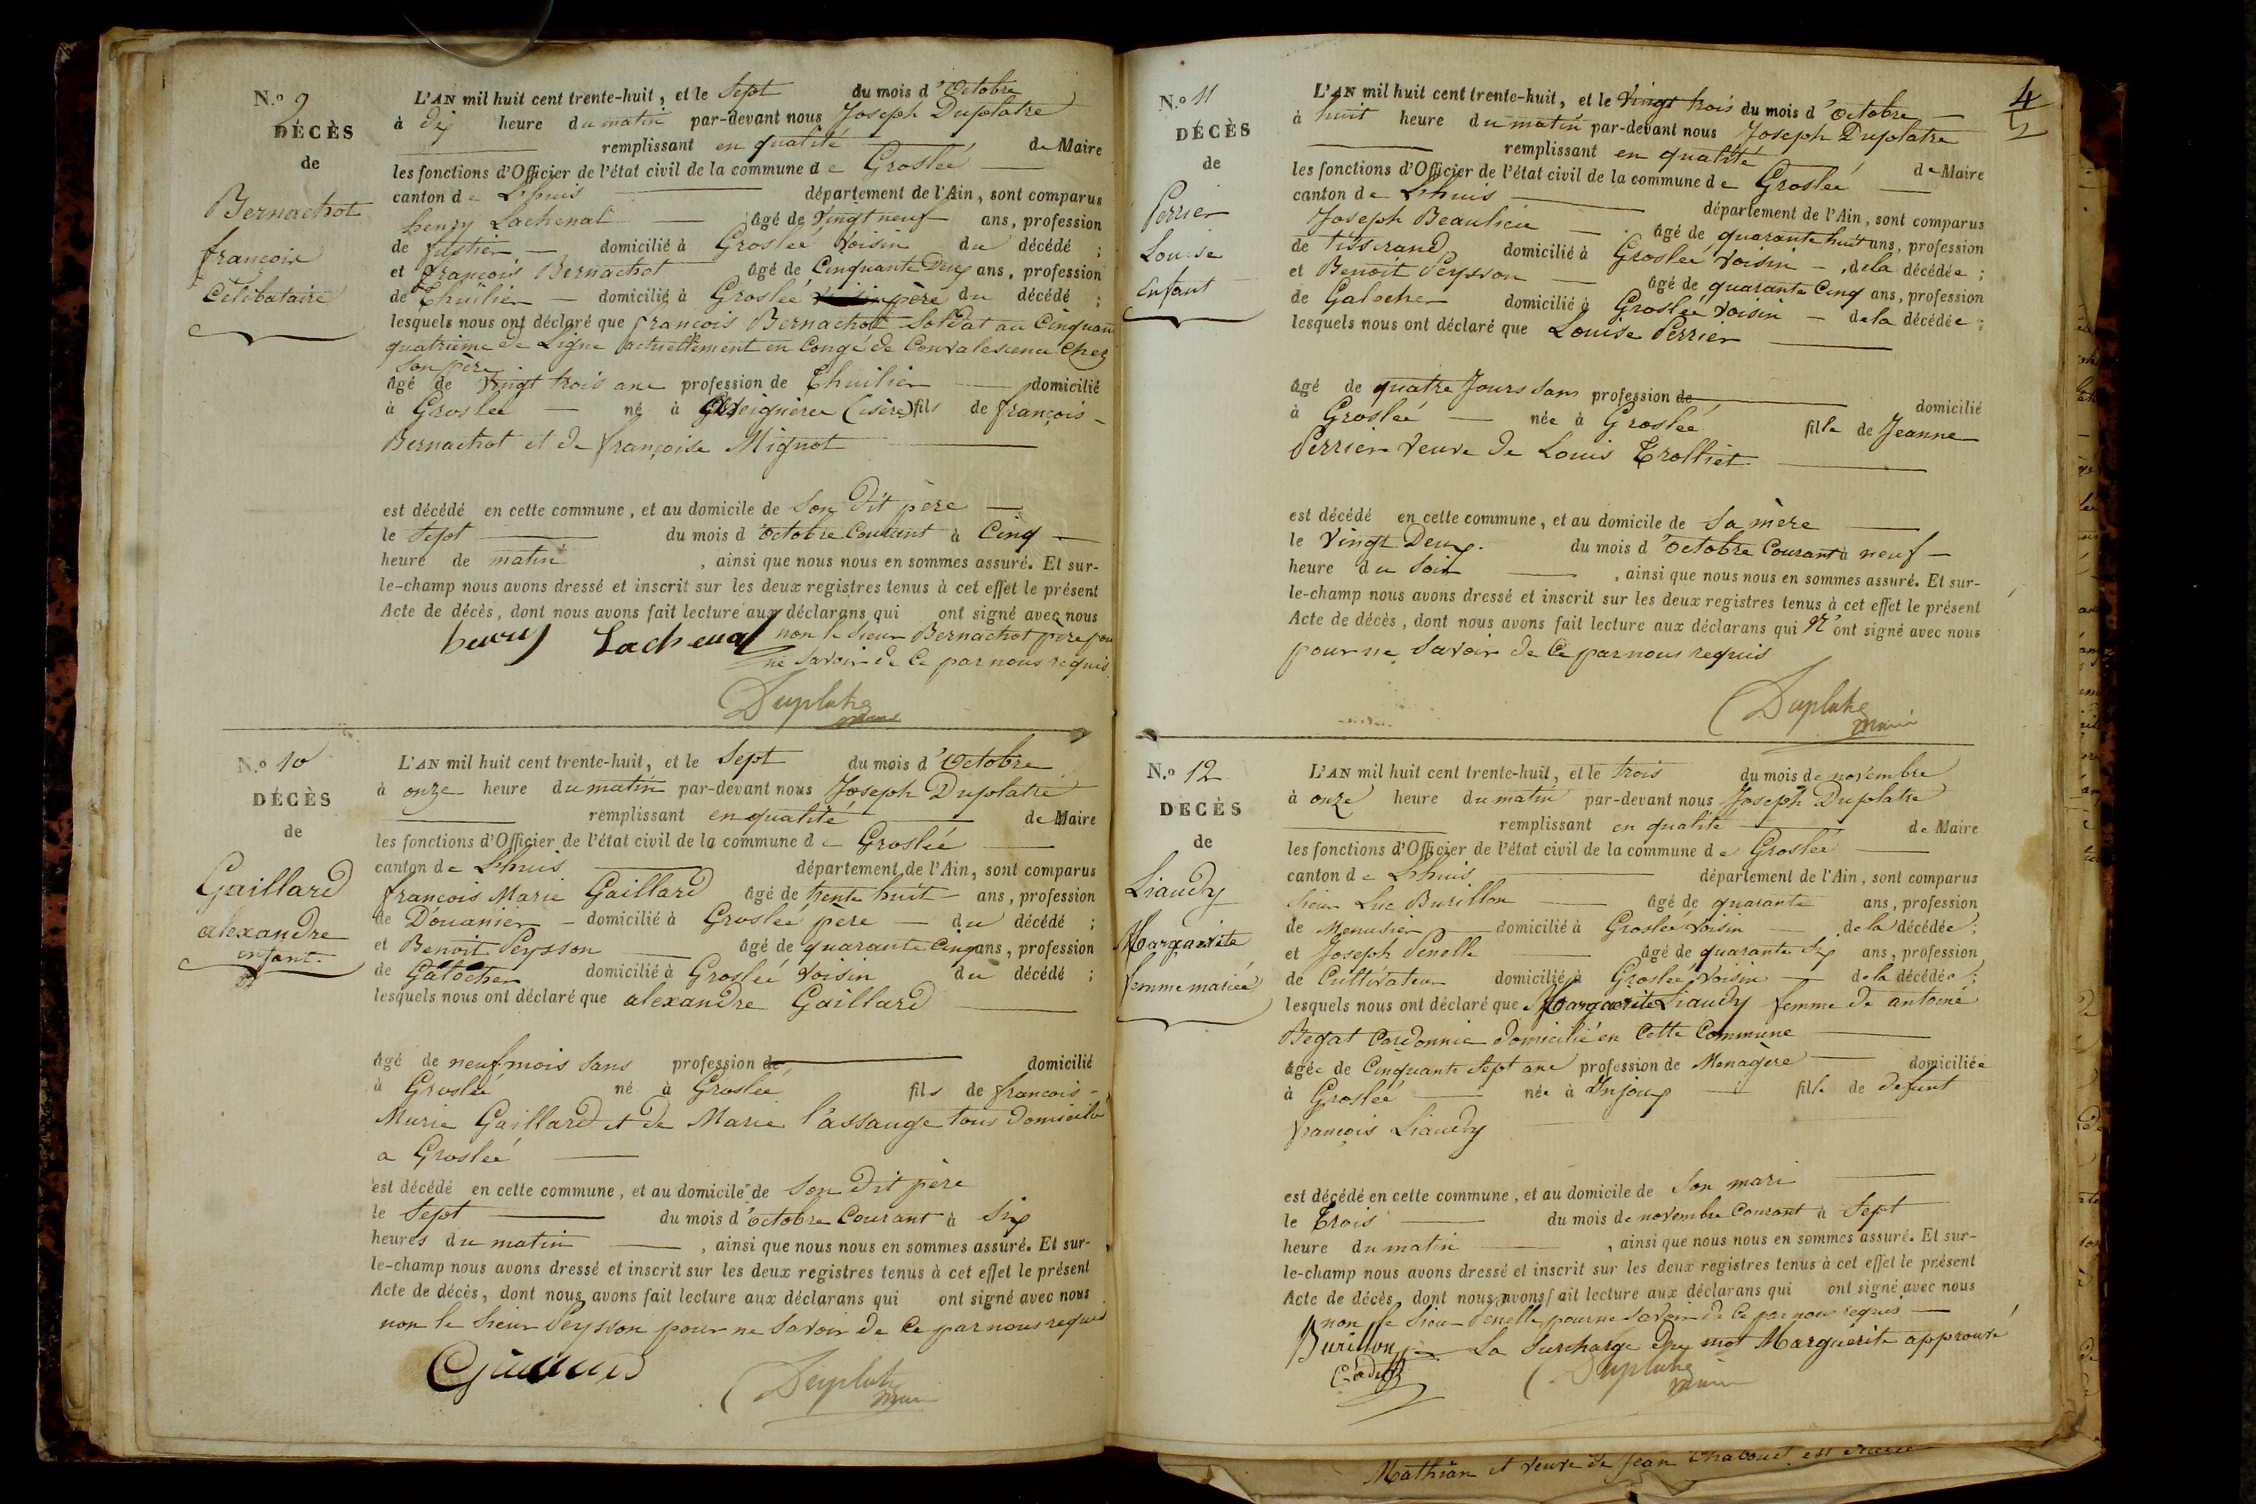 N.o 9
DÉCÈS
de
Bernachot
françois
Célibataire
L'AN mil huit cent trente-huit, et le Sept du mois d'Octobre
à dix heure du matin par-devant nous Joseph Duplatre
remplissant en qualité de Maire
les fonctions d'Officier de l'état civil de la commune de Groslée
canton de Lhuis département de l'Ain, sont comparus
henry Lachenal âgé de Vingt neuf ans, profession
de fustier domicilié à Groslée Voisin du décédé ;
et françois Bernachot âgé de Cinquante Deux ans, profession
de Thuilier domicilié à Groslée père du décédé ;
lesquels nous ont déclaré que françois Bernachot Soldat au Cinquan
quatrième de Ligne actuellement en Congé de Convalescence chez
Son père
âgé de Vingt trois ans profession de Thuilier domicilié
à Groslée né à (isère) fils de françois
Bernachot et de françoise Mignot
est décédé en cette commune, et au domicile de Son Dit père
le Sept du mois d'octobre Courant à Cinq
heure de matin , ainsi que nous nous en sommes assuré. Et sur-
le-champ nous avons dressé et inscrit sur les deux registres tenus à cet effet le présent
Acte de décès, dont nous avons fait lecture aux déclarans qui ont signé avec nous
non le Sieur Bernachot père pour
henry Lachenal
ne Savoir de Ce par nous requis
Duplatre
maire
N.o 10
DÉCÈS
de
Gaillard
alexandre
enfant
L'AN mil huit cent trente-huit, et le Sept du mois d'Octobre
à onze heure du matin par-devant nous Joseph Duplatre
remplissant en qualité de Maire
les fonctions d'Officier de l'état civil de la commune de Groslée
canton de Lhuis département de l'Ain, sont comparus
françois Marie Gaillard âgé de trente huit ans, profession
de Douanier domicilié à Groslée père du décédé ;
et Benoit Peysson âgé de quarante Cinq ans, profession
de Galocher domicilié à Groslée Voisin du décédé ;
lesquels nous ont déclaré que alexandre Gaillard
âgé de neuf mois Sans profession de domicilié
à Groslée né à Groslée fils de françois
Marie Gaillard et de Marie l'assauge tous Domicilié
a Groslée
est décédé en cette commune, et au domicile de Son Dit père
le Sept du mois d'octobre Courant à Six
heures du matin , ainsi que nous nous en sommes assuré. Et sur-
le-champ nous avons dressé et inscrit sur les deux registres tenus à cet effet le présent
Acte de décès, dont nous avons fait lecture aux déclarans qui ont signé avec nous
non le Sieur Peysson pour ne Savoir de Ce par nous requis
Gaillard
Duplatre
maire
4
N.o 11
DÉCÈS
de
Perrier
Louise
Enfant
L'AN mil huit cent trente-huit, et le Vingt trois du mois d'octobre
à huit heure du matin par-devant nous Joseph Duplatre
remplissant en qualité de Maire
les fonctions d'Officier de l'état civil de la commune de Groslée
canton de Lhuis département de l'Ain, sont comparus
Joseph Beaulieu âgé de quarante huit ans, profession
de tisserand domicilié à Groslée Voisin de la décédée ;
et Benoit Peysson âgé de quarante Cinq ans, profession
de Galocher domicilié à Groslée Voisin de la décédée ;
lesquels nous ont déclaré que Louise Perrier
âgé de quatre Jours Sans profession de domicilié
à Groslée née à Groslée fille de Jeanne
Perrier Veuve de Louis Trolliet
est décédé en cette commune, et au domicile de Sa mère
le Vingt Deux du mois d'octobre Courant à neuf
heure du Soir , ainsi que nous nous en sommes assuré. Et sur-
le-champ nous avons dressé et inscrit sur les deux registres tenus à cet effet le présent
Acte de décès, dont nous avons fait lecture aux déclarans qui n'ont signé avec nous
pour ne Savoir de Ce par nous requis
Duplatre
maire
N.o 12
DÉCÈS
de
Liaudy
Marguerite
femme mariée
L'AN mil huit cent trente-huit, et le trois du mois de novembre
à onze heure du matin par-devant nous Joseph Duplatre
remplissant en qualité de Maire
les fonctions d'Officier de l'état civil de la commune de Groslée
canton de Lhuis département de l'Ain, sont comparus
Sieur Luc Burillon âgé de quarante ans, profession
de Menusier domicilié à Groslée Voisin de la décédée ;
et Joseph Penelle âgé de quarante Six ans, profession
de Cultivateur domicilié à Groslée Voisin de la décédée ;
lesquels nous ont déclaré que Marguerite Liaudy femme de antoine
Begat Cordonnie domicilié en Cette Commune
âgée de Cinquante Sept ans profession de Menagère domiciliée
à Groslée née à Injoux fille de defunt
françois Liaudy
est décédé en cette commune, et au domicile de Son mari
le Trois du mois de novembre Courant à Sept
heure du matin , ainsi que nous nous en sommes assuré. Et sur-
le-champ nous avons dressé et inscrit sur les deux registres tenus à cet effet le présent
Acte de décès, dont nous avons fait lecture aux déclarans qui ont signé avec nous
non le Sieur Penelle pour ne Savoir de Ce par nous requis
Burillon La Surcharge du mot Marguerite approuvé
Duplatre
maire
Mathian et Veuve de Jean Chaboud est décédé